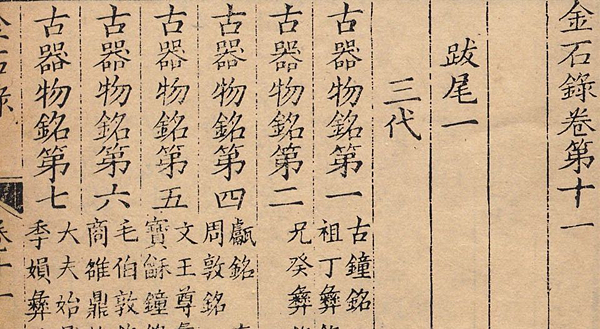 金石錄卷第十一
跋尾一
三代
古器物銘第一
古鐘銘
祖丁彝
古器物銘第二
兄癸彝
古器物銘第四
甗銘
周敦銘
古器物銘第五
文王尊
寶龢鐘
古器物銘第六
毛伯敦
商雒鼎
古器物銘第七
大夫始
季娟彝
石錄